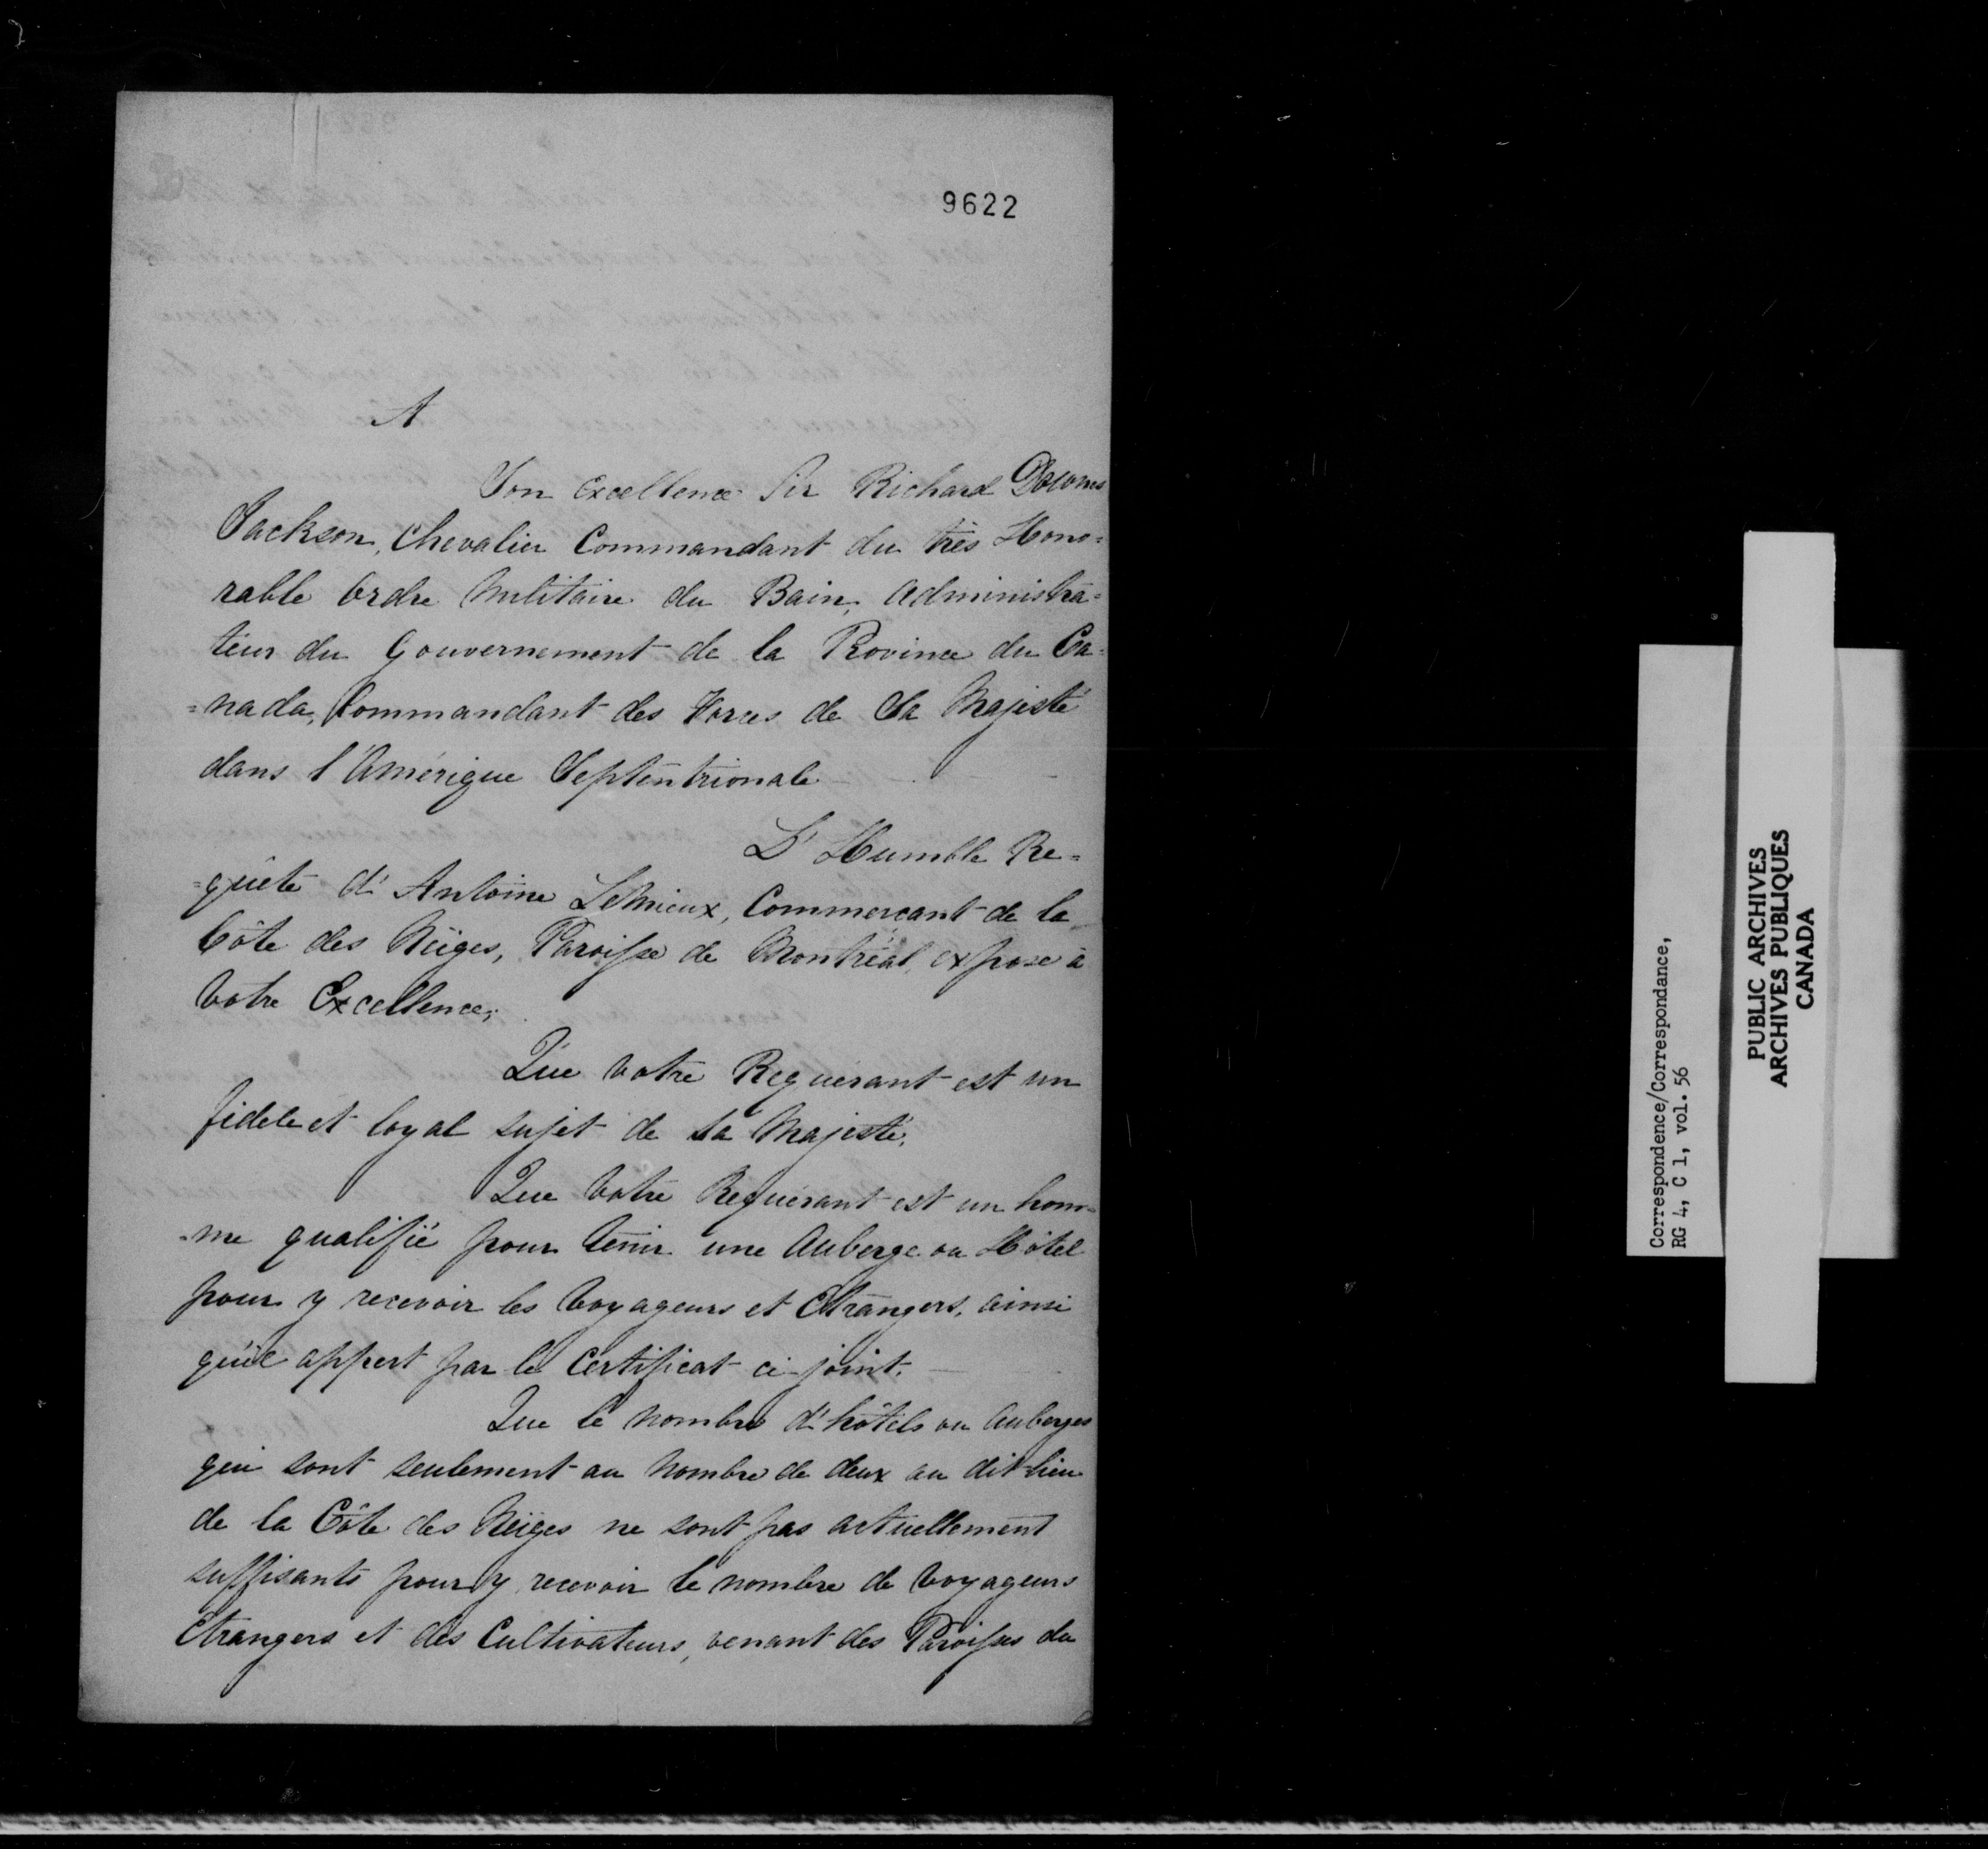 9622
A
Son Excellence Sir Richard Downes
Jackson, Chevalier Commandant du très Hono=
rable Ordre Militaire du Bain, Administra=
teur du Gouvernement de la Province du Ca=
=nada, Commandant des Forces de Sa Majesté
dans l'Amérique Septentrionale
L'Humble Re=
=quête d'Antoine LeMieux, Commerçant de la
Côte des Neiges, Paroisse de Montréal, expose à
Votre Excellence;
Que Votre Requérant est un
fidele et loyal sujet de sa Majesté.
Que Votre Requérant est un hom=
=me qualifié pour tenir une Auberge ou Hôtel
pour y recevoir les Voyageurs et Etrangers, ainsi
qu'il appert par le Certificat ci-joint.
Que le nombre d'hôtels ou Auberges
qui sont seulement au nombre de deux au dit lieu
de la Côte des Neiges ne sont pas actuellement
suffisants pour y recevoir le nombre de Voyageurs
Etrangers et des Cultivateurs, venant des Paroisses du
Correspondence/Correspondance,
RG 4, C 1, vol. 56
PUBLIC ARCHIVES
ARCHIVES PUBLIQUES
CANADA